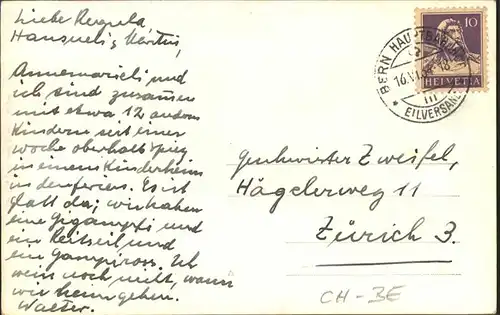 Liebe Regula
Hansueli & Märtin,
Annemarieli und
ich sind zusamen
mit etwa 12 andern
Kindern seit einer
woche oberhalb Spiez
in einem Kinderheim
in den ferien. Es ist
glatt da; wir haben
eine Gigampfi und
ein Reitseil und
ein Gampiross. Ich
weiss noch nicht, wann
wir heim gehen.
Walter.
10
HELVETIA
BERN HAUPTBAHNHOF
16.VI.
III
* EILVERSAND
Geschwister Zweifel,
Hägelerweg 11
Zürich 3.
CH-BE